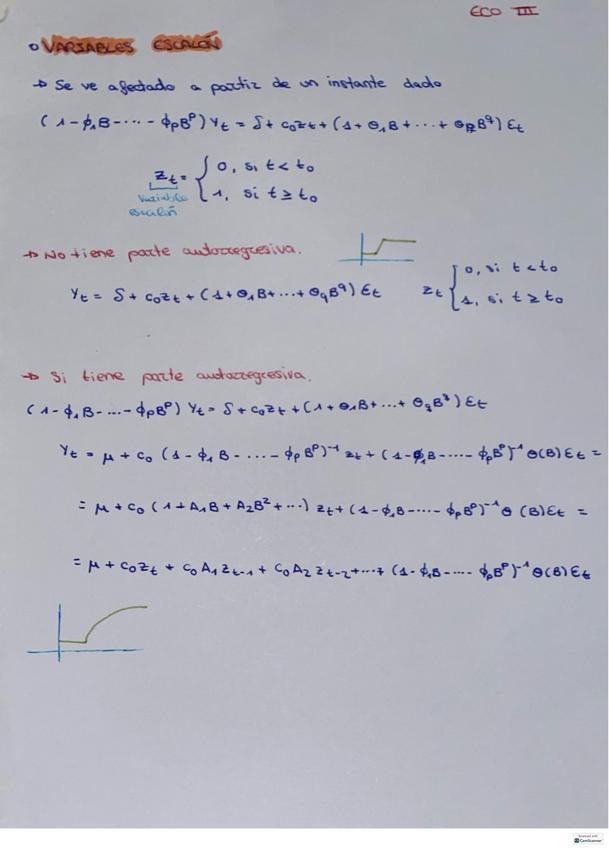 ECO III
o VARIABLES ESCALÓN
→ Se ve afectado a partir de un instante dado
(1-ϕ₁B-···-ϕₚBᵖ) Yₜ = δ + c₀zₜ + (1+θ₁B+···+θqB^q) Ɛₜ
zₜ = { 0, si t < t₀
1, si t ≥ t₀
Variable
escalón
→ No tiene parte autorregresiva.
Yₜ = δ + c₀zₜ + (1+θ₁B+···+θqB^q) Ɛₜ zₜ { 0, si t < t₀
1, si t ≥ t₀
→ Si tiene parte autorregresiva.
(1-ϕ₁B-...-ϕₚBᵖ) Yₜ = δ + c₀zₜ + (1+θ₁B+...+θqB^q) Ɛₜ
Yₜ = μ + c₀ (1-ϕ₁B-···-ϕₚBᵖ)⁻¹ zₜ + (1-ϕ₁B-····-ϕₚBᵖ)⁻¹ θ(B)Ɛₜ =
= μ + c₀ (1+A₁B+A₂B²+···) zₜ + (1-ϕ₁B-····-ϕₚBᵖ)⁻¹ θ(B)Ɛₜ =
= μ + c₀zₜ + c₀A₁zₜ₋₁ + c₀A₂zₜ₋₂ +···+ (1-ϕ₁B-····-ϕₚBᵖ)⁻¹ θ(B)Ɛₜ
CamScanner